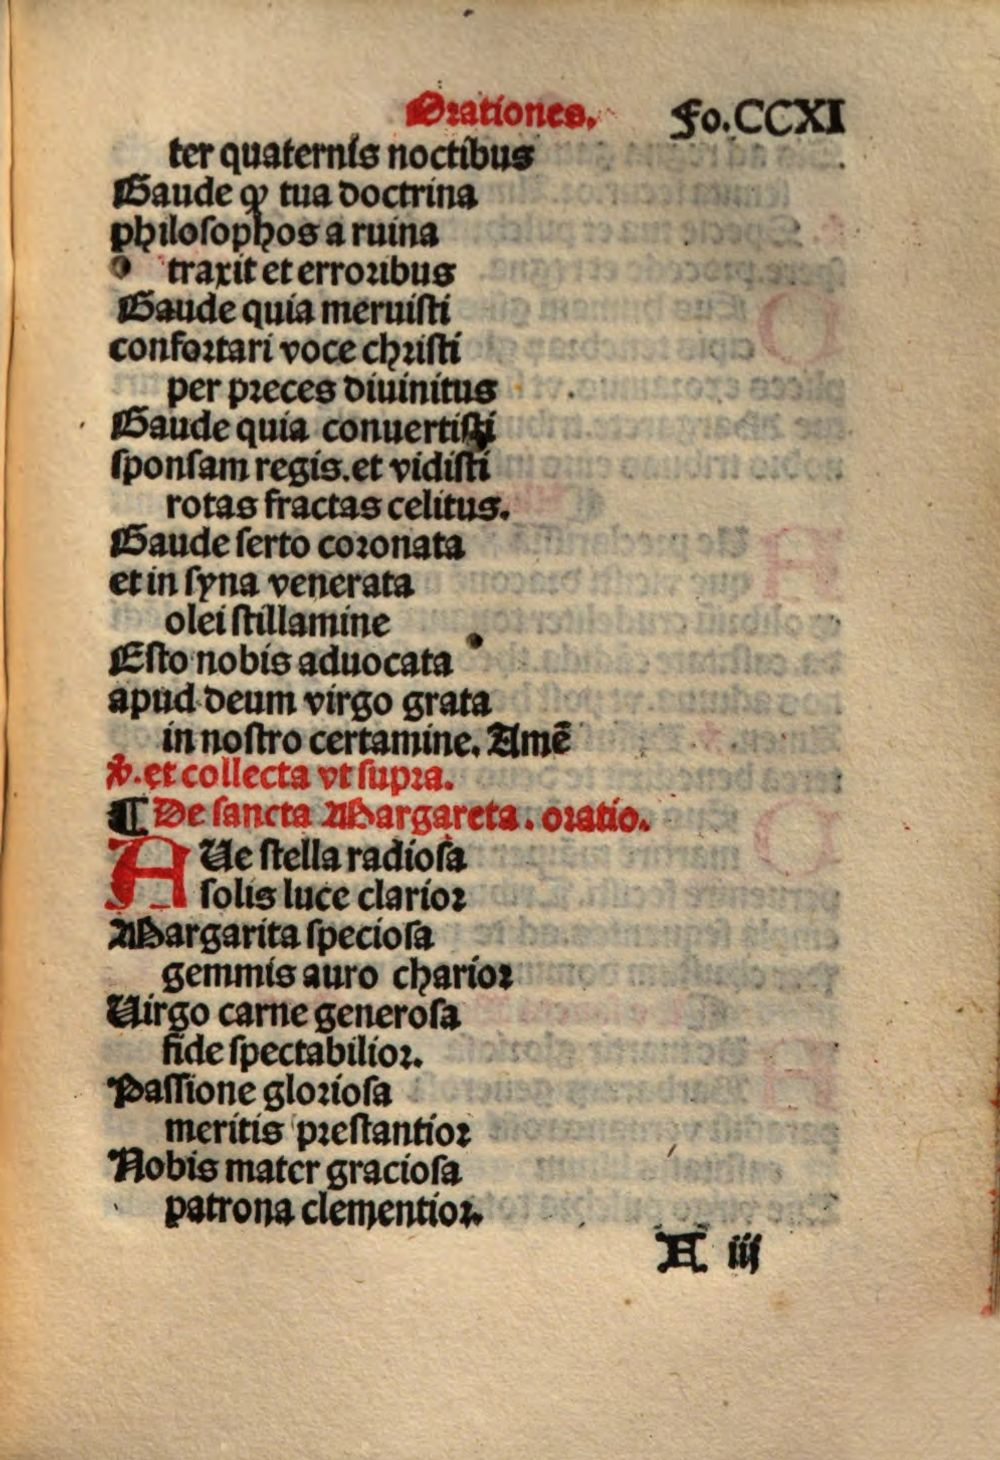 Orationes. Fo.CCXI
ter quaternis noctibus
Gaude ꝙ tua doctrina
philosophos a ruina
traxit et erroribus
Gaude quia meruisti
confortari voce christi
per preces diuinitus
Gaude quia conuertisti
sponsam regis.et vidisti
rotas fractas celitus.
Gaude serto coronata
et in syna venerata
olei stillamine
Esto nobis aduocata
apud deum virgo grata
in nostro certamine. Amē
℣. et collecta vt supra.
¶ De sancta Margareta. oratio.
AUe stella radiosa
solis luce clarior
Margarita speciosa
gemmis auro charior
Uirgo carne generosa
fide spectabilior.
Passione gloriosa
meritis prestantior
Nobis mater graciosa
patrona clementior.
A iij